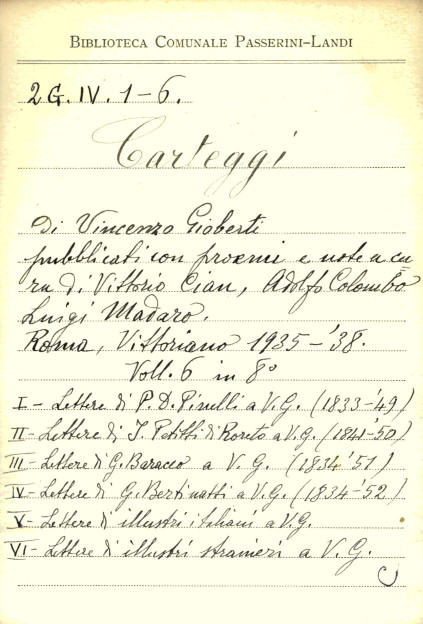 BIBLIOTECA COMUNALE PASSERINI-LANDI
2 G. IV. 1-6.
Carteggi
Di Vincenzo Gioberti
pubblicati con proemi e note a cu
ra di Vittorio Cian, Adolfo Colombo
Luigi Madaro.
Roma, Vittoriano 1935-'38.
Voll. 6 in 8°
I - Lettere di P. D. Pinelli a V. G. (1833-'49)
II - Lettere di I. Petitti di Roreto a V. G. (1841-'50)
III - Lettere di G. Baracco a V. G. (1834-'51)
IV - Lettere di G. Bertinatti a V. G. (1834-'52)
V - Lettere di illustri italiani a V. G.
VI - Lettere di illustri stranieri a V. G.